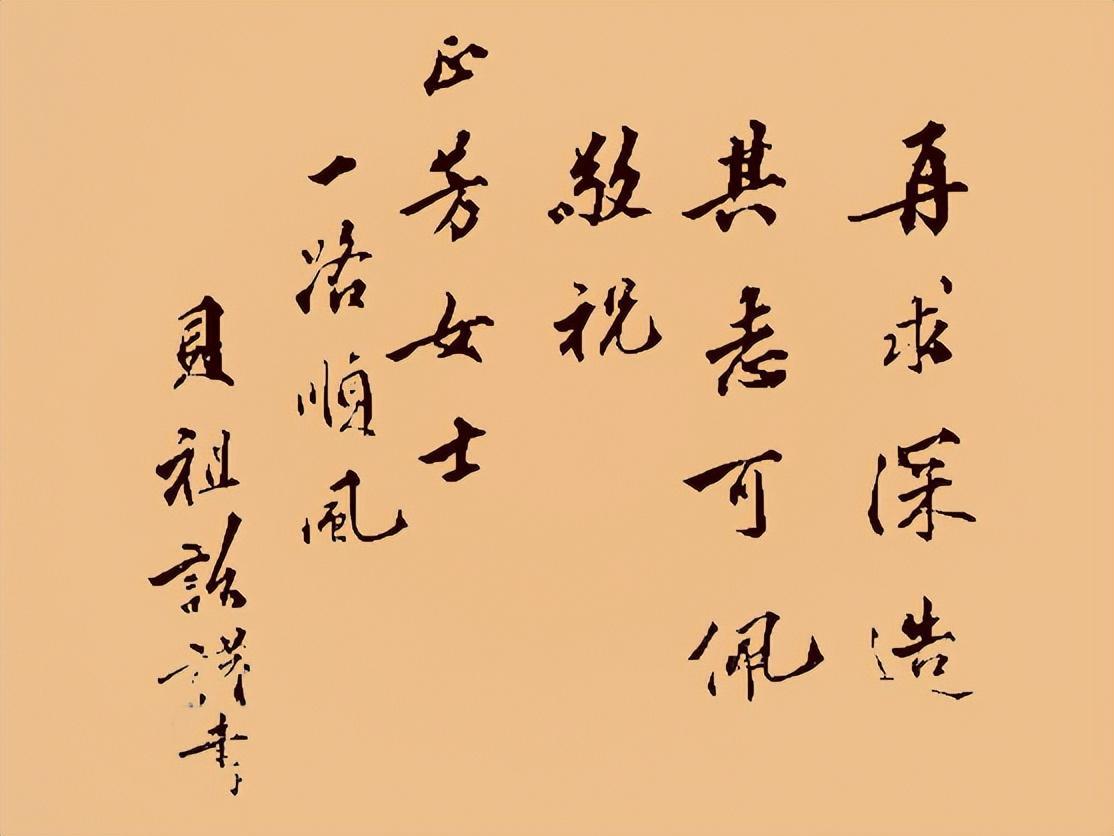 再求深造
其志可佩
敬祝
正芳女士
一路順風
貝祖詒謹書